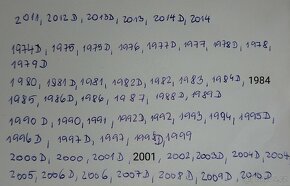 2011, 2012D, 2013D, 2013, 2014D, 2014
1974D, 1975, 1975D, 1976, 1977D, 1977, 1978D, 1978,
1979D
1980, 1981D, 1981, 1982D, 1982, 1983, 1984D, 1984
1985, 1986D, 1986, 1987, 1988D, 1989D
1990D, 1990, 1991, 1992D, 1992, 1993, 1994, 1995D,
1996D, 1997D, 1997, 1998D, 1999
2000D, 2000, 2001D, 2001, 2002, 2003D, 2004D, 2004
2005, 2006D, 2006, 2007D, 2008D, 2009D, 2010D